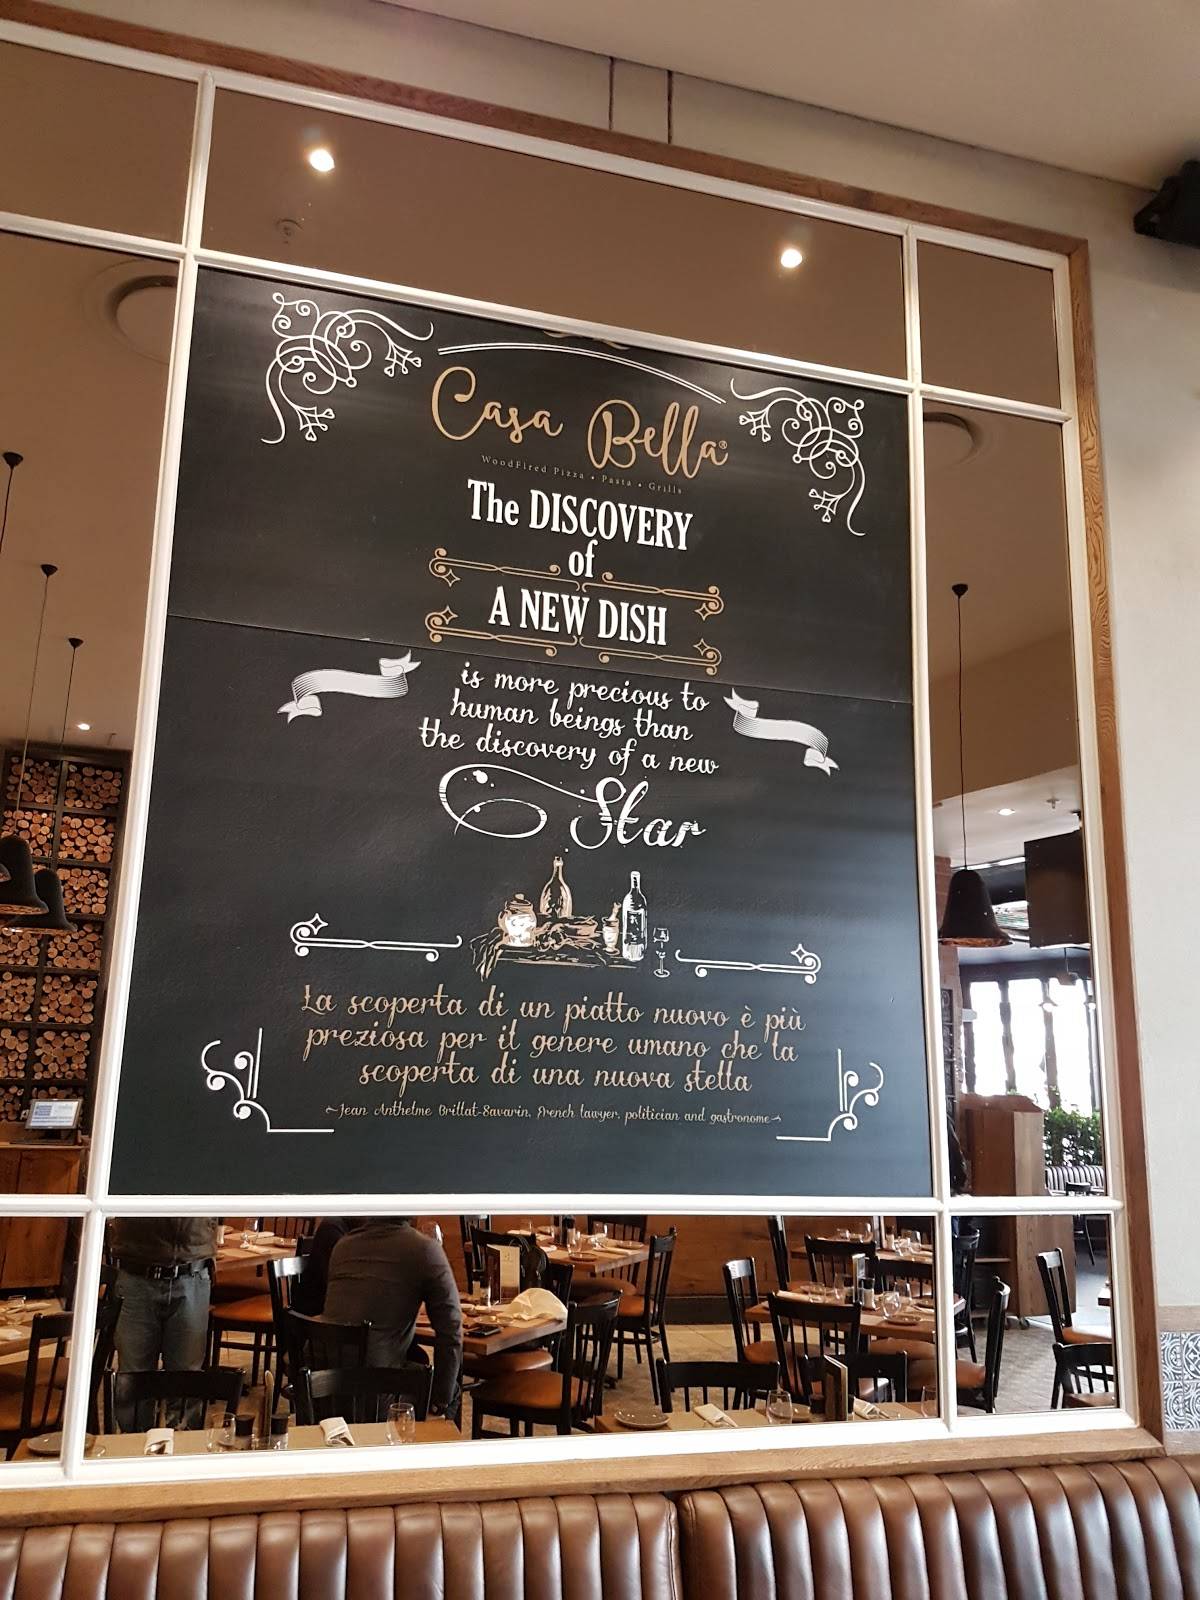 Casa Bella®
WoodFired Pizza • Pasta • Grills
The DISCOVERY
of
A NEW DISH
is more precious to
human beings than
the discovery of a new
Star
La scoperta di un piatto nuovo è più
preziosa per il genere umano che la
scoperta di una nuova stella
~Jean Anthelme Brillat-Savarin, French lawyer, politician and gastronome~